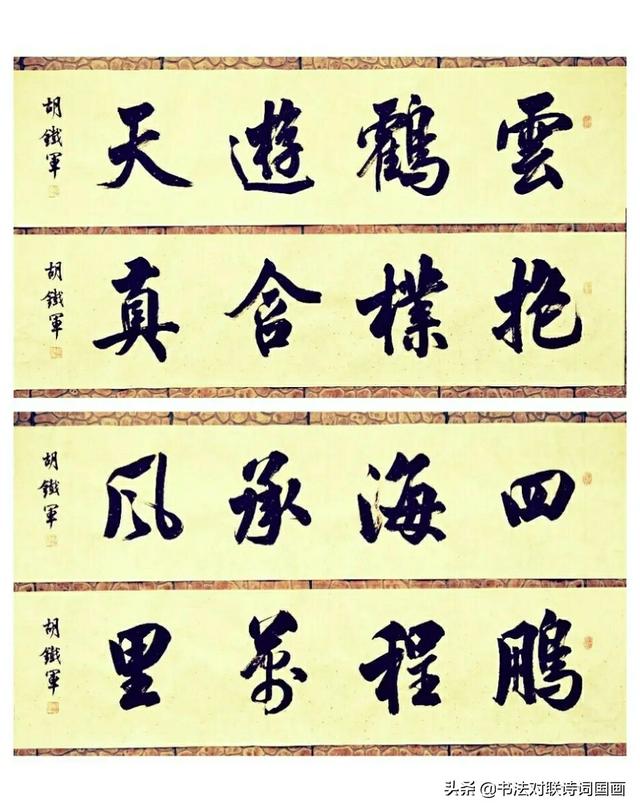 雲鶴遊天
胡鐵軍
抱樸含真
胡鐵軍
四海承風
胡鐵軍
鵬程萬里
胡鐵軍
头条 @书法对联诗词国画